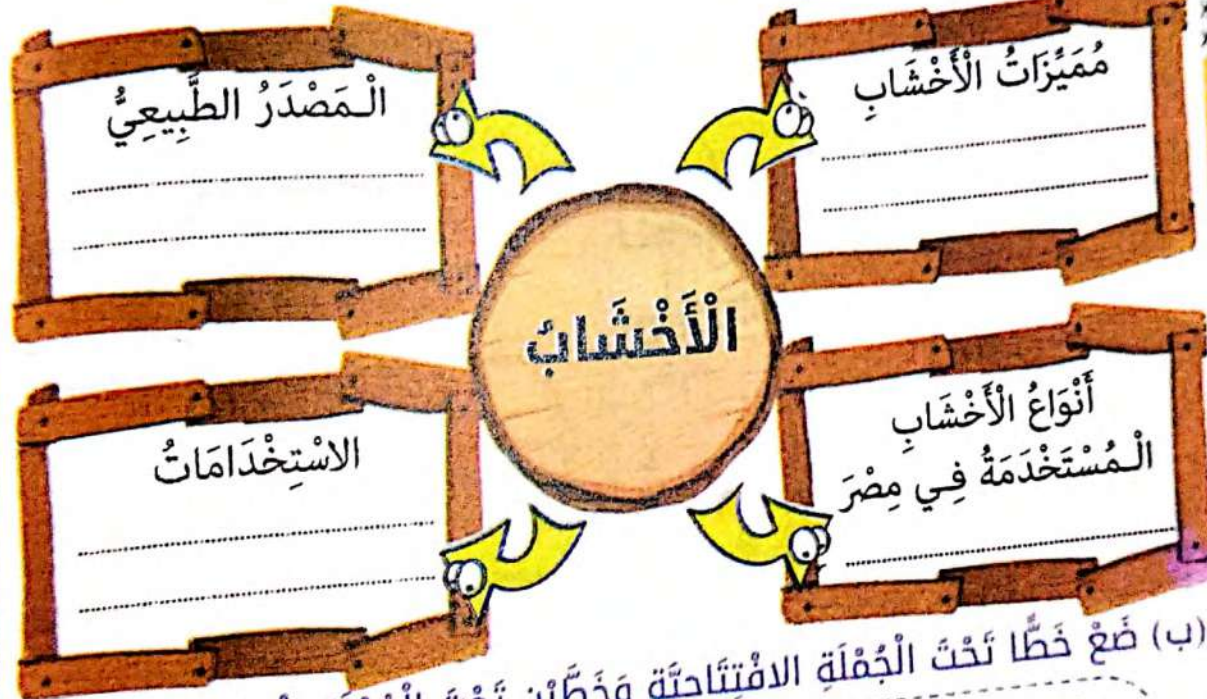 مُمَيِّزَاتُ الْأَخْشَابِ
الْمَصْدَرُ الطَّبِيعِيُّ
الْأَخْشَابُ
أَنْوَاعُ الْأَخْشَابِ
الْمُسْتَخْدَمَةُ فِي مِصْرَ
الاسْتِخْدَامَاتُ
(ب) ضَعْ خَطًّا تَحْتَ الْجُمْلَةِ الافْتِتَاحِيَّةِ وَخَطَّيْنِ تَحْتَ